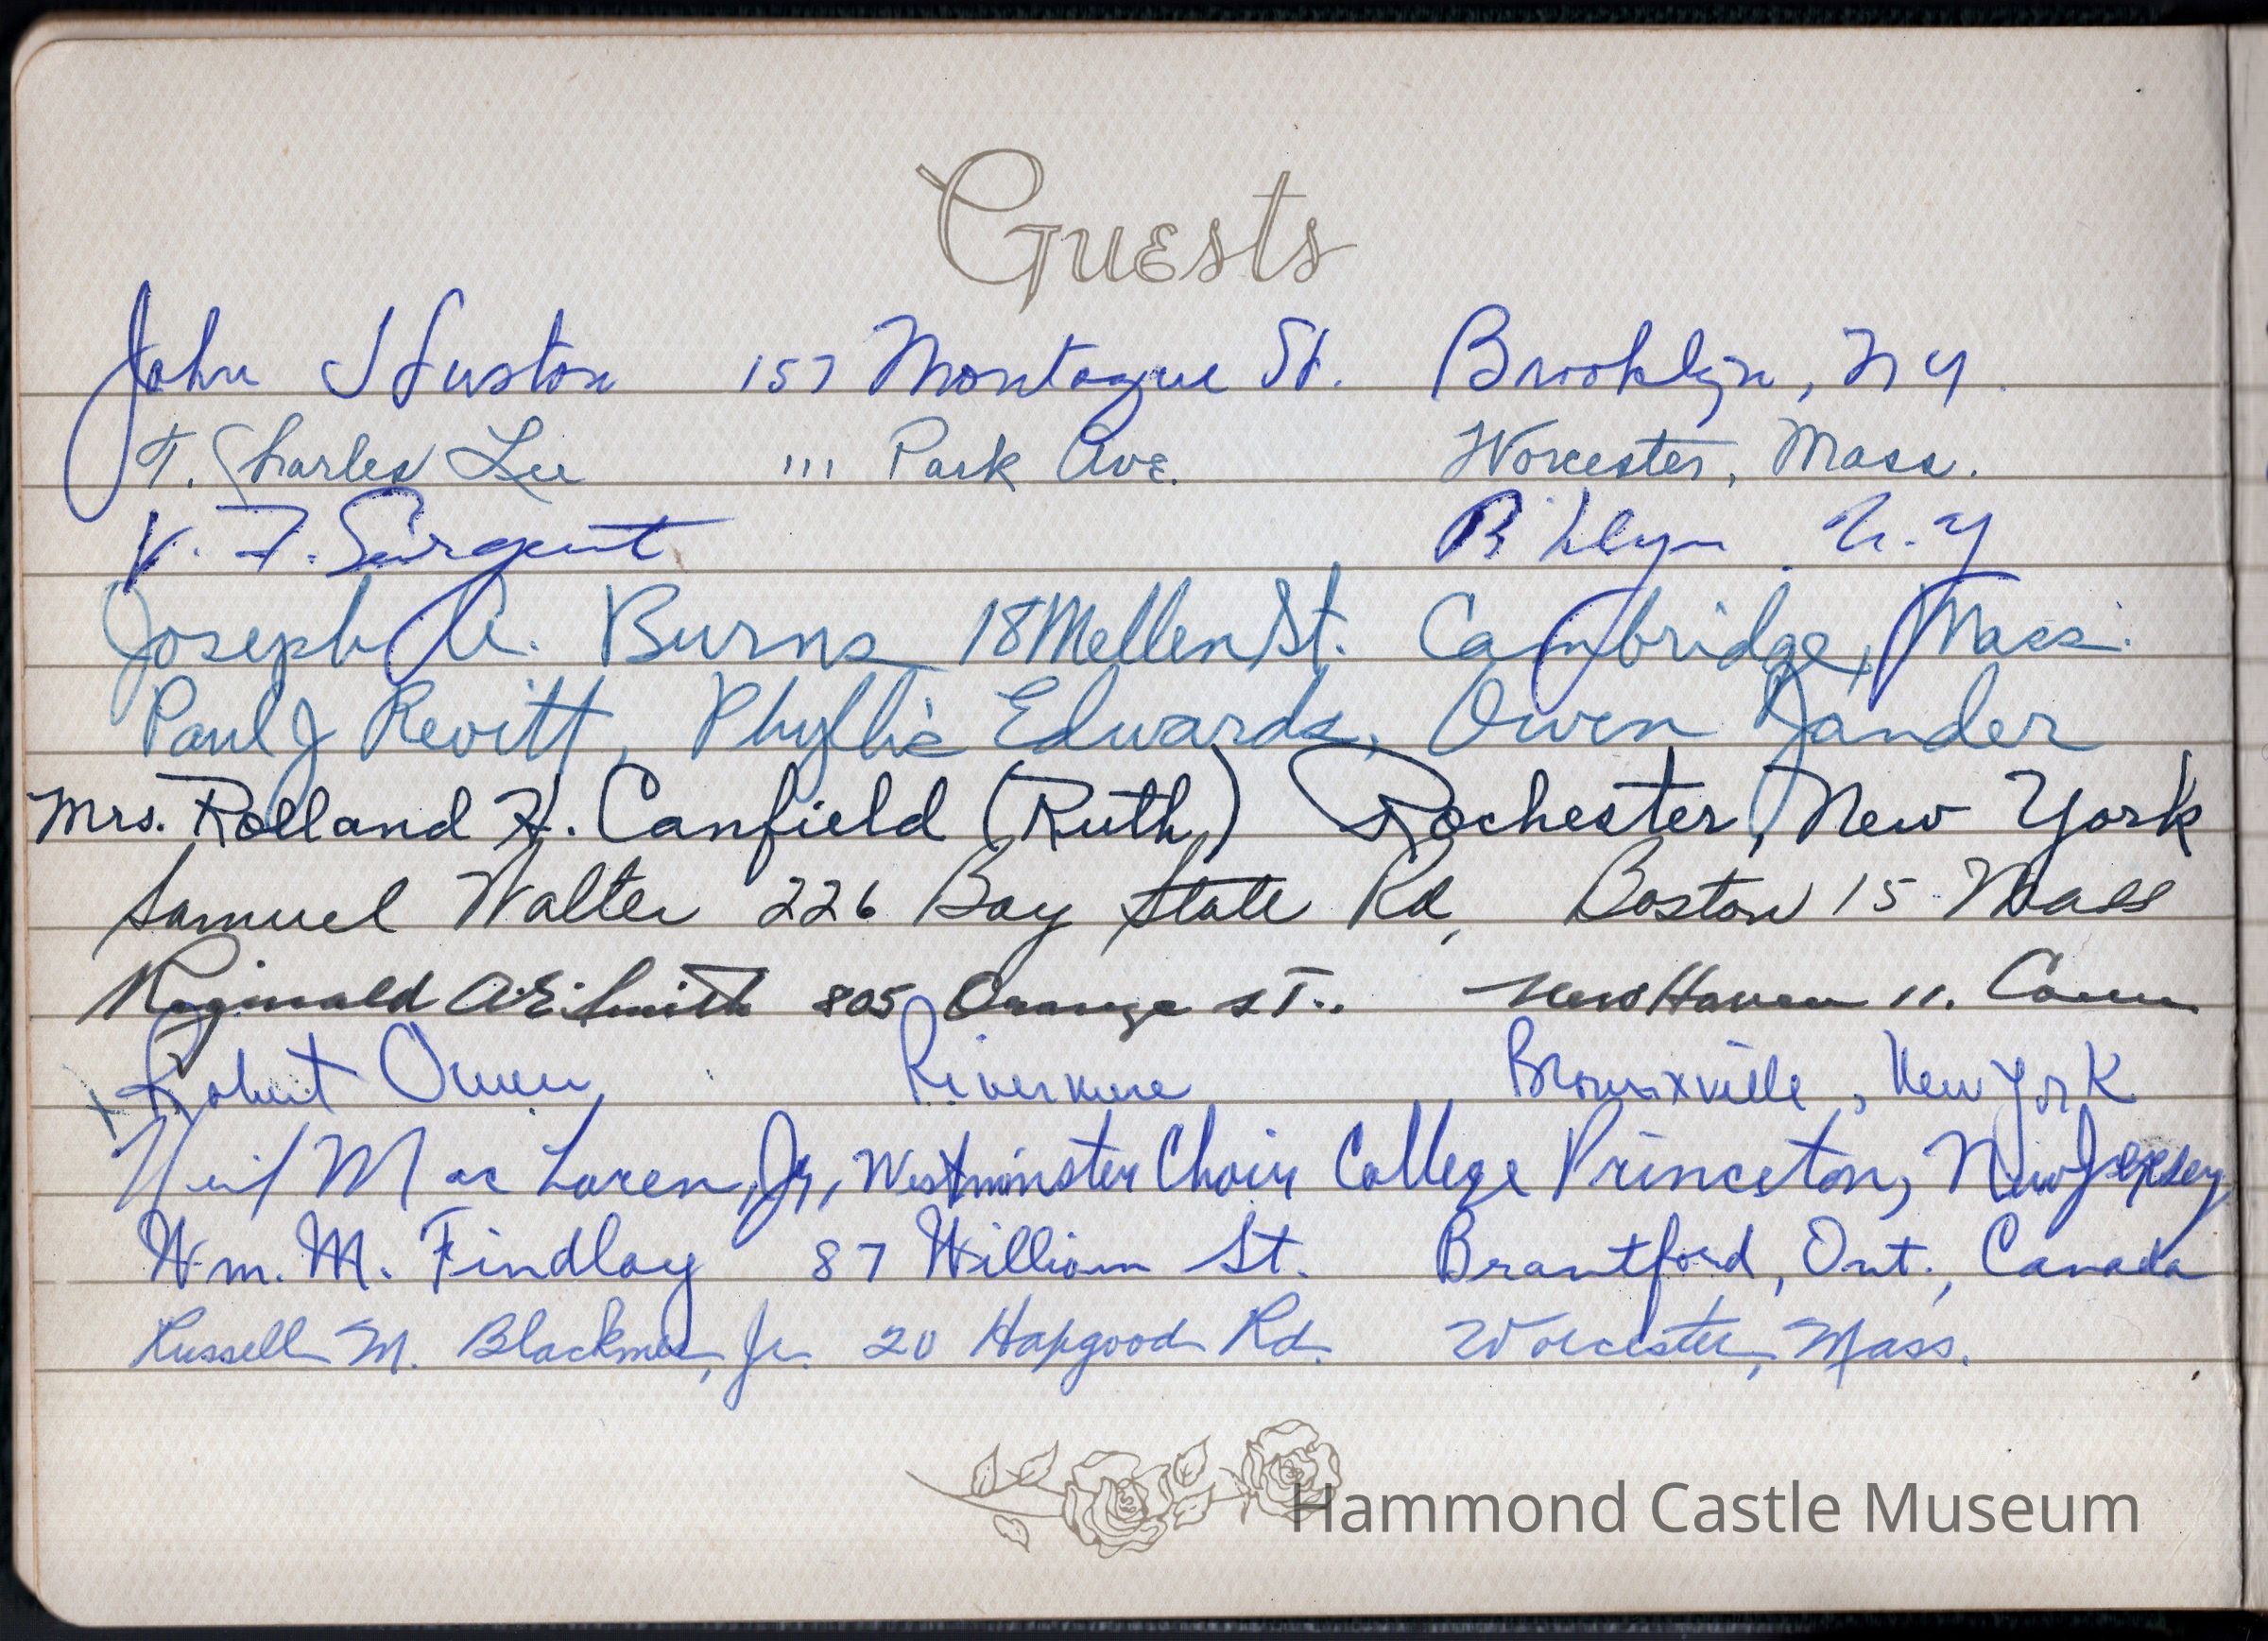 Guests
John Huston 157 Montague St. Brooklyn, NY.
T. Charles Lee 111 Park Ave. Worcester, Mass.
V. F. Sargent B'klyn. N.Y
Joseph A. Burns 18 Mellen St. Cambridge, Mass.
Paul J Revitt, Phyllis Edwards, Owen Jander
Mrs. Rolland H. Canfield (Ruth) Rochester, New York
Samuel Walter 226 Bay State Rd, Boston 15 Mass
Reginald A.E. Smith 805 Orange St.. New Haven 11. Conn
Robert Owen Bronxville, New York
Neil Mac Laren, Jr., Westminster Choir College Princeton, New Jersey
Wm. M. Findlay 87 William St. Brantford, Ont., Canada
Russell M. Blackmer, Jr. 20 Hapgood Rd. Worcester, Mass.
Hammond Castle Museum